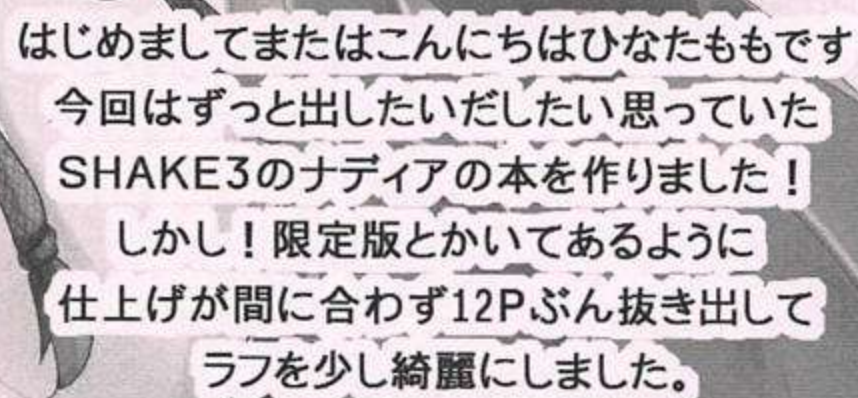 はじめましてまたはこんにちはひなたももです
今回はずっと出したいだしたい思っていた
SHAKE3のナディアの本を作りました！
しかし！限定版とかいてあるように
仕上げが間に合わず12Pぶん抜き出して
ラフを少し綺麗にしました。